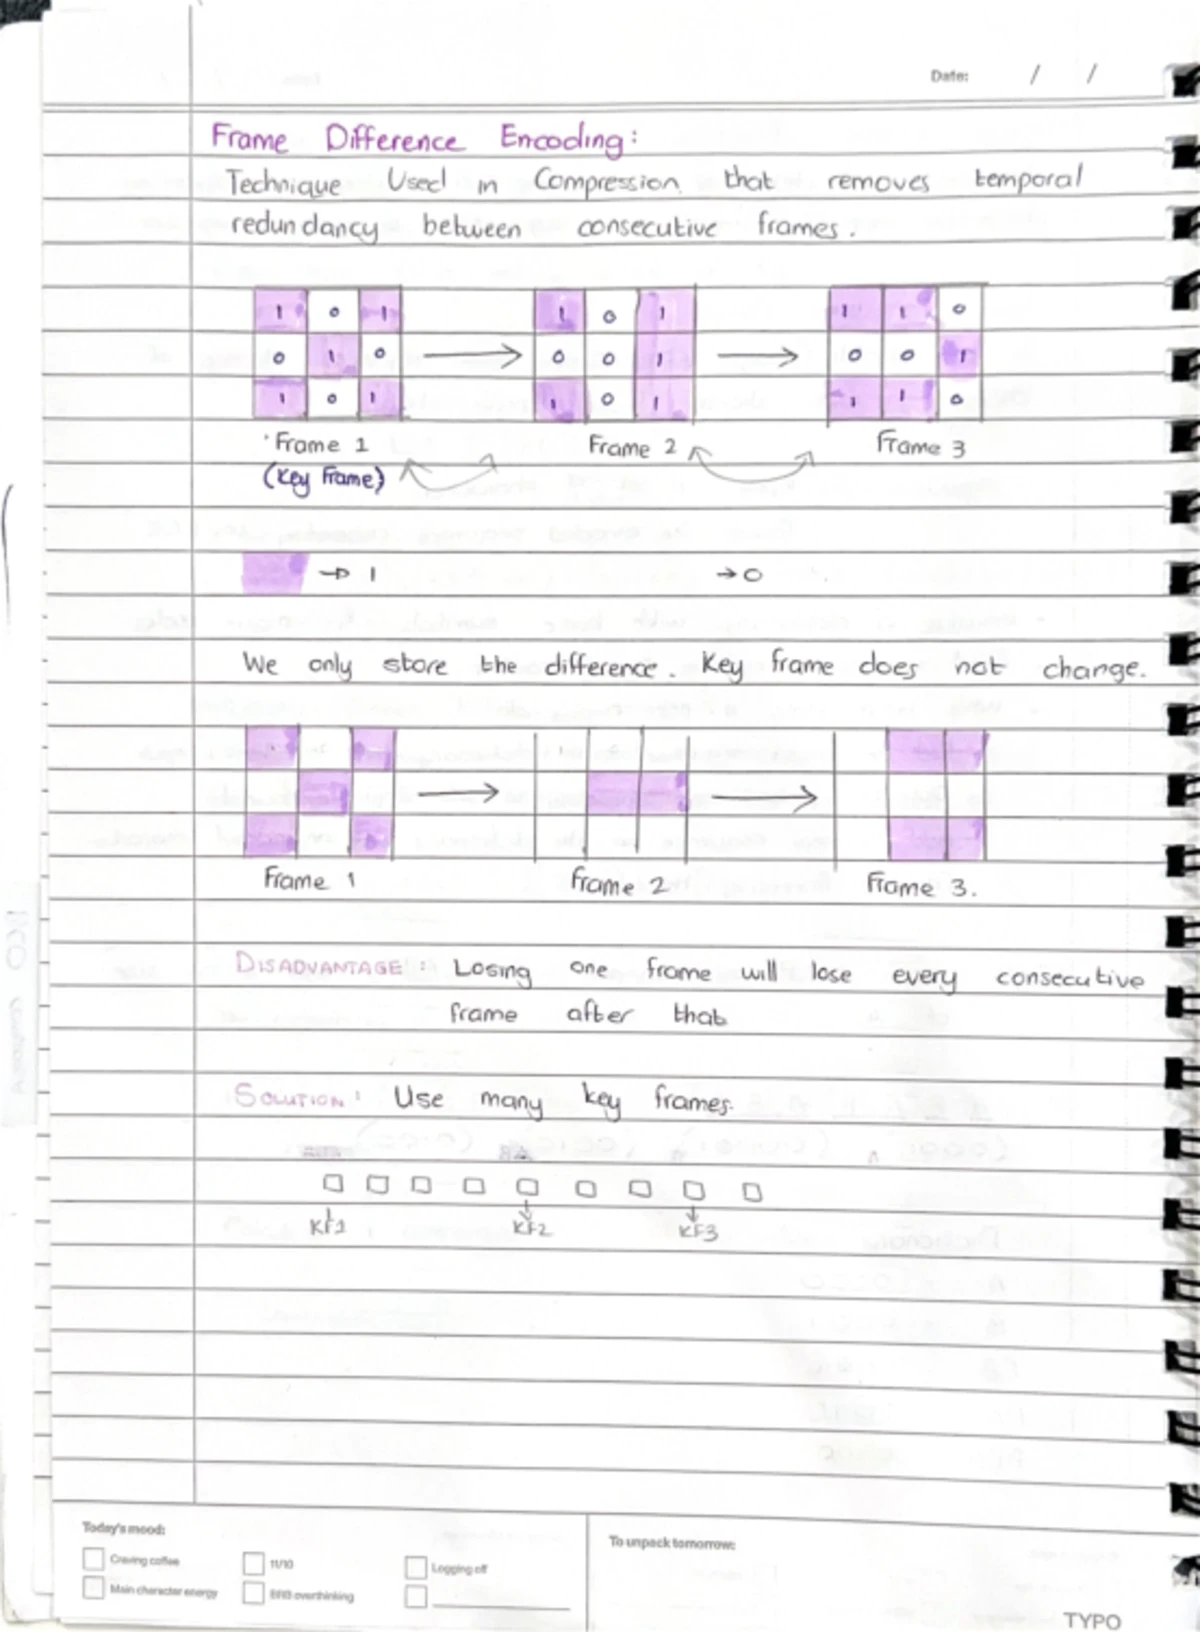 Date: / /
Frame Difference Encoding:
Technique Used in Compression that removes temporal
redundancy between consecutive frames.
1 0 1 1 0 1 1 1 0
0 1 0 0 0 1 0 0 1
1 0 1 1 0 1 1 1 0
Frame 1 Frame 2 Frame 3
(Key Frame)
→ 1 → 0
We only store the difference. Key frame does not change.
Frame 1 Frame 2 Frame 3.
DISADVANTAGE: Losing one frame will lose every consecutive
frame after that
SOLUTION: Use many key frames.
KF1 KF2 KF3
Today's mood:
Craving coffee 11/10 Logging off
Main character energy BRB overthinking
To unpack tomorrow:
TYPO